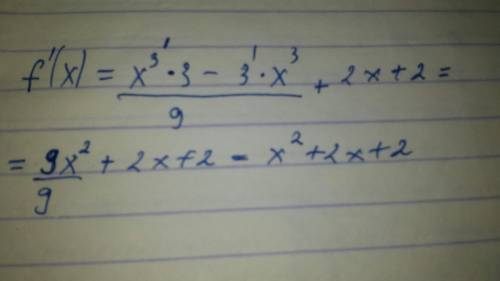 f'(x) = x³' · 3 - 3' · x³ / 9 + 2x + 2 =
= 9x² / 9 + 2x + 2 - x² + 2x + 2